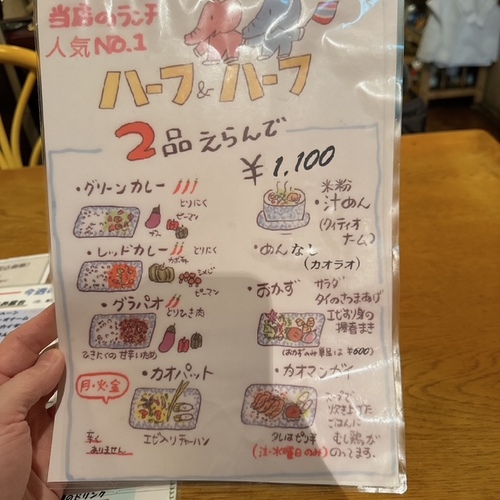 当店のランチ
人気 NO.1
ハーフ&ハーフ
2品えらんで
¥1,100
・グリーンカレー
とりにく
ナス
ピーマン
・レッドカレー
とりにく
カボチャ
シメジ
ピーマン
・グラパオ
とりひき肉
ひきにくの甘辛いため
月・火・金
・カオパット
辛く
ありません
エビ入りチャーハン
米粉
・汁めん
(クイティオ
ナーム)
・めんなし
(カオラオ)
・おかず
サラダ
タイのさつまあげ
エビすり身の
揚春まき
(おかずのみ単品は¥600)
・カオマンガツ
スープで
炊き上げた
ごはんに
むし鶏が
のってます。
タレはピリ辛
(注・水曜日のみ)
ドリンク